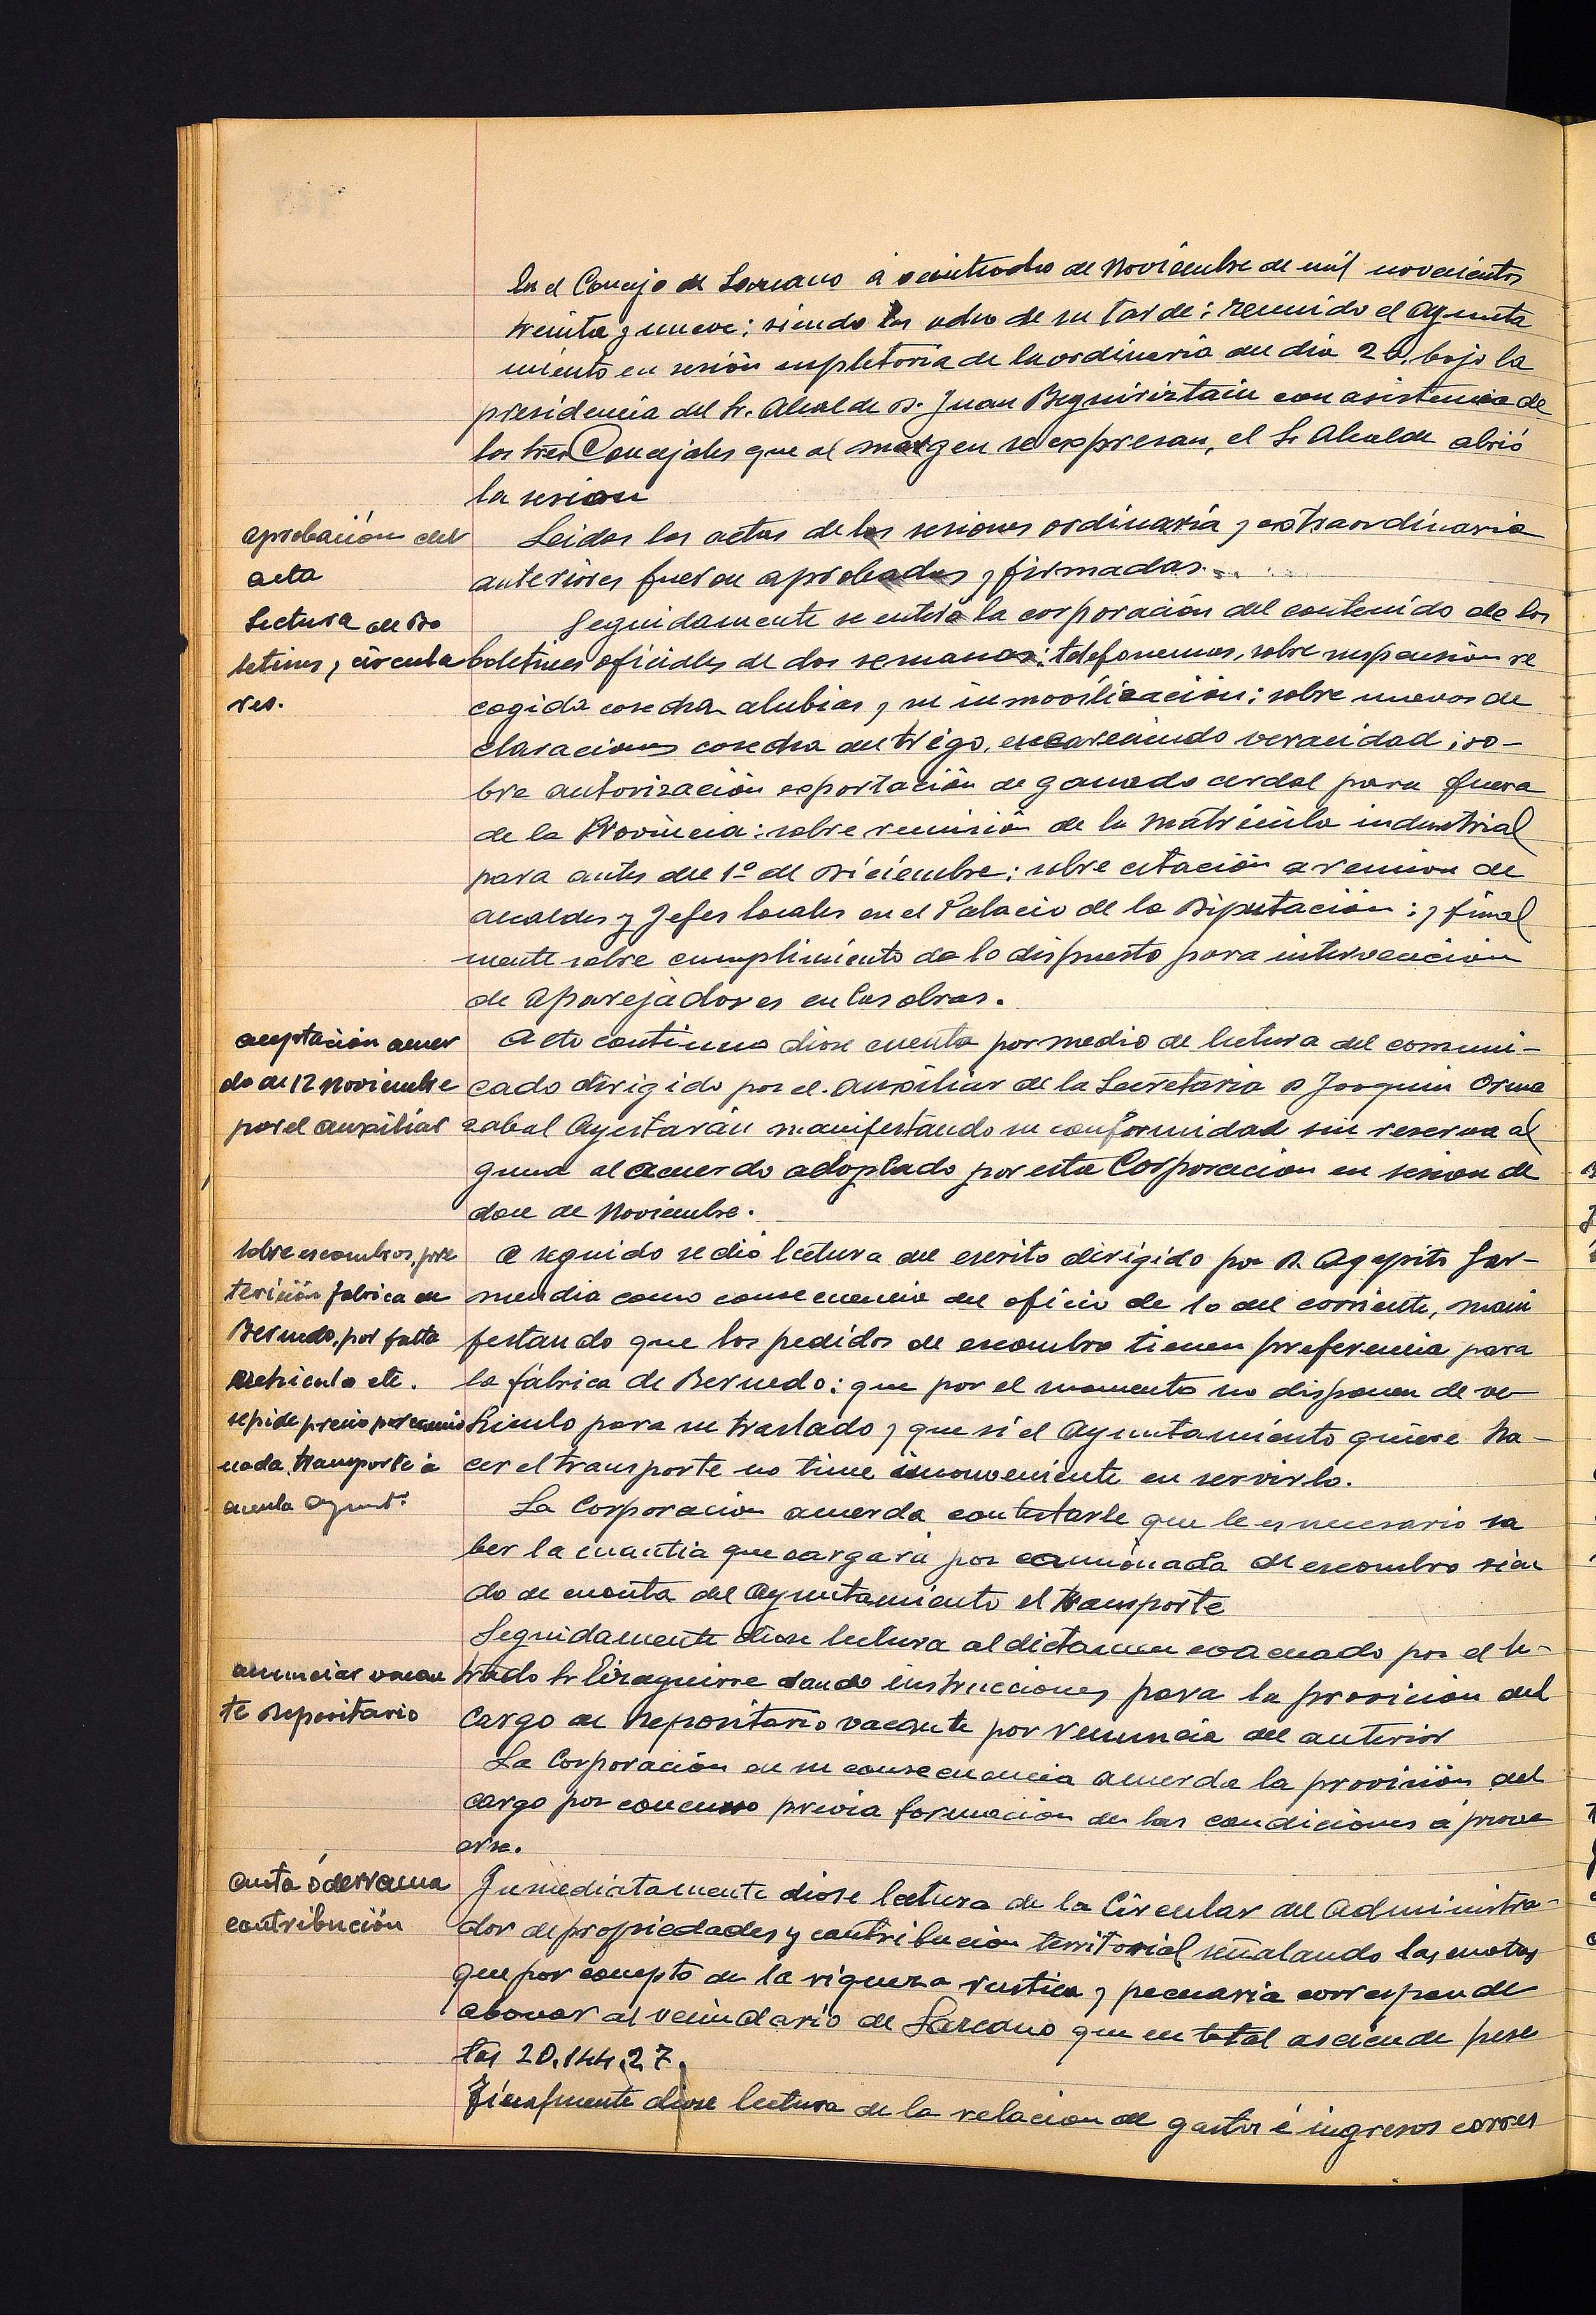 En el Concejo de Lazcano á veintiocho de Noviembre de mil novecientos
treinta y nueve: siendo las ocho de su tarde: reunido el Ayunta
miento en sesión supletoria de la ordinaria del dia 26, bajo la
presidencia del Sr. Alcalde D. Juan Beguiristain con asistencia de
los tres Concejales que al margen se expresan, el Sr Alcalde abrió
la sesion
aprobación del
acta
Leidas las actas de las sesiones ordinaria y extraordinaria
anteriores fueron aprobadas y firmadas.
Lectura de Bo
letines y circula
res.
Seguidamente se enteró la corporación del contenido de los
boletines oficiales de dos semanas: telefonemas, sobre suspensión re
cogida cosecha alubias y su inmovilización: sobre nuevas de
claraciones cosecha de trigo, encareciendo veracidad: so-
bre autorización exportación de ganado cerdal para fuera
de la Provincia: sobre remisión de la matrícula industrial
para antes del 1º de Diciembre: sobre citación a reunion de
alcaldes y Jefes locales en el Palacio de la Diputación: y final
mente sobre cumplimiento de lo dispuesto para intervencion
de Aparejadores en las obras.
aceptación acuer
do de 12 Noviembre
por el auxiliar
Acto continuo diose cuenta por medio de lectura del comuni-
cado dirigido por el auxiliar de la Secretaria D Joaquin Orma
zabal Ayestarán manifestando su conformidad sin reserva al
guna al acuerdo adoptado por esta Corporacion en sesion de
doce de Noviembre.
sobre escombros, pre
terición fabrica de
Bernedo, por falta
vehiculo etc.
se pide precio por camio
nada, transporte á
cuenta Ayunt.º
A seguido se dió lectura del escrito dirigido por D. Agapito Gar-
mendia como consecuencia del oficio de 10 del corriente, mani
festando que los pedidos de escombro tienen preferencia para
la fabrica de Bernedo: que por el momento no disponen de ve-
hiculo para su traslado y que si el Ayuntamiento quiere ha-
cer el transporte no tiene inconveniente en servirlo.
La Corporacion acuerda contestarle que le es necesario sa
ber la cuantia que cargará por camionada de escombro sien
do de cuenta del Ayuntamiento el transporte
anunciar vacan
te Depositario
Seguidamente diose lectura al dictamen evacuado por el le-
trado Sr Eizaguirre dando instrucciones para la provision del
Cargo de Depositario vacante por renuncia del anterior
La Corporación en su consecuencia acuerda la provisión del
cargo por concurso previa formación de las condiciones á prove
erse.
cuota ó derrama
contribución
Inmediatamente diose lectura de la Circular del Administra-
dor de propiedades y contribución territorial señalando las cuotas
que por concepto de la riqueza rustica y pecuaria corresponde
abonar al vecindario de Lazcano que en total asciende pese
tas 20.144,27.
Finalmente diose lectura de la relacion de gastos é ingresos corres